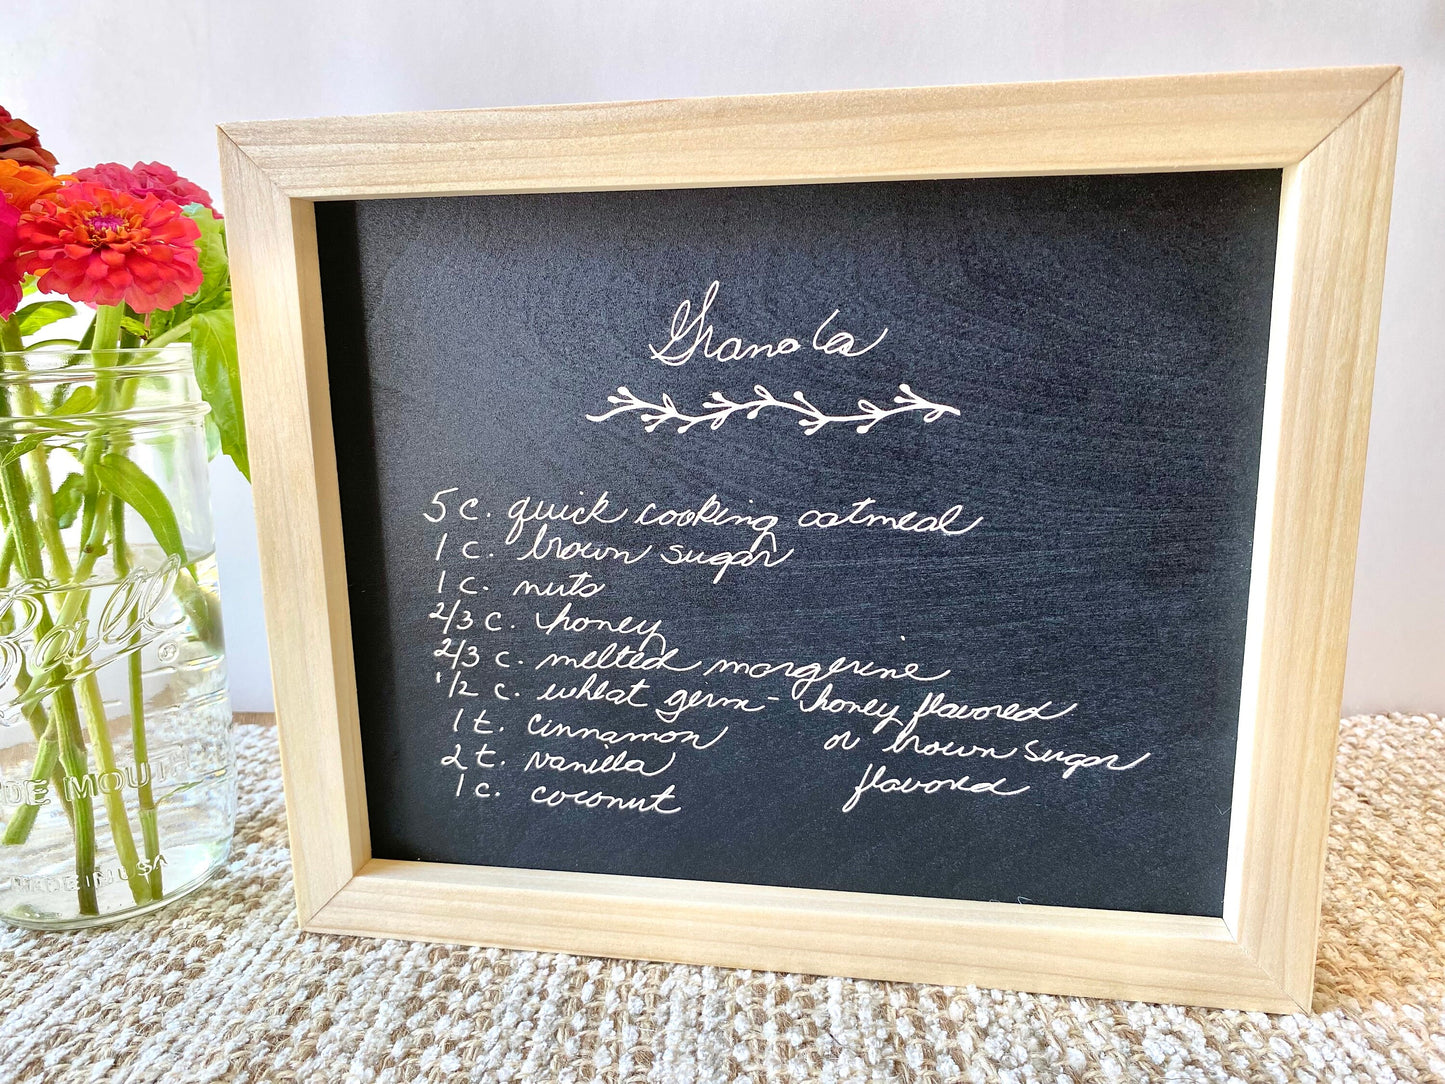 Granola
5 c. quick cooking oatmeal
1 c. brown sugar
1 c. nuts
2/3 c. honey
2/3 c. melted margerine
1/2 c. wheat germ - honey flavored
1 t. cinnamon or brown sugar
2 t. vanilla flavored
1 c. coconut
Ball
®
DE MOUTH
MADE IN USA